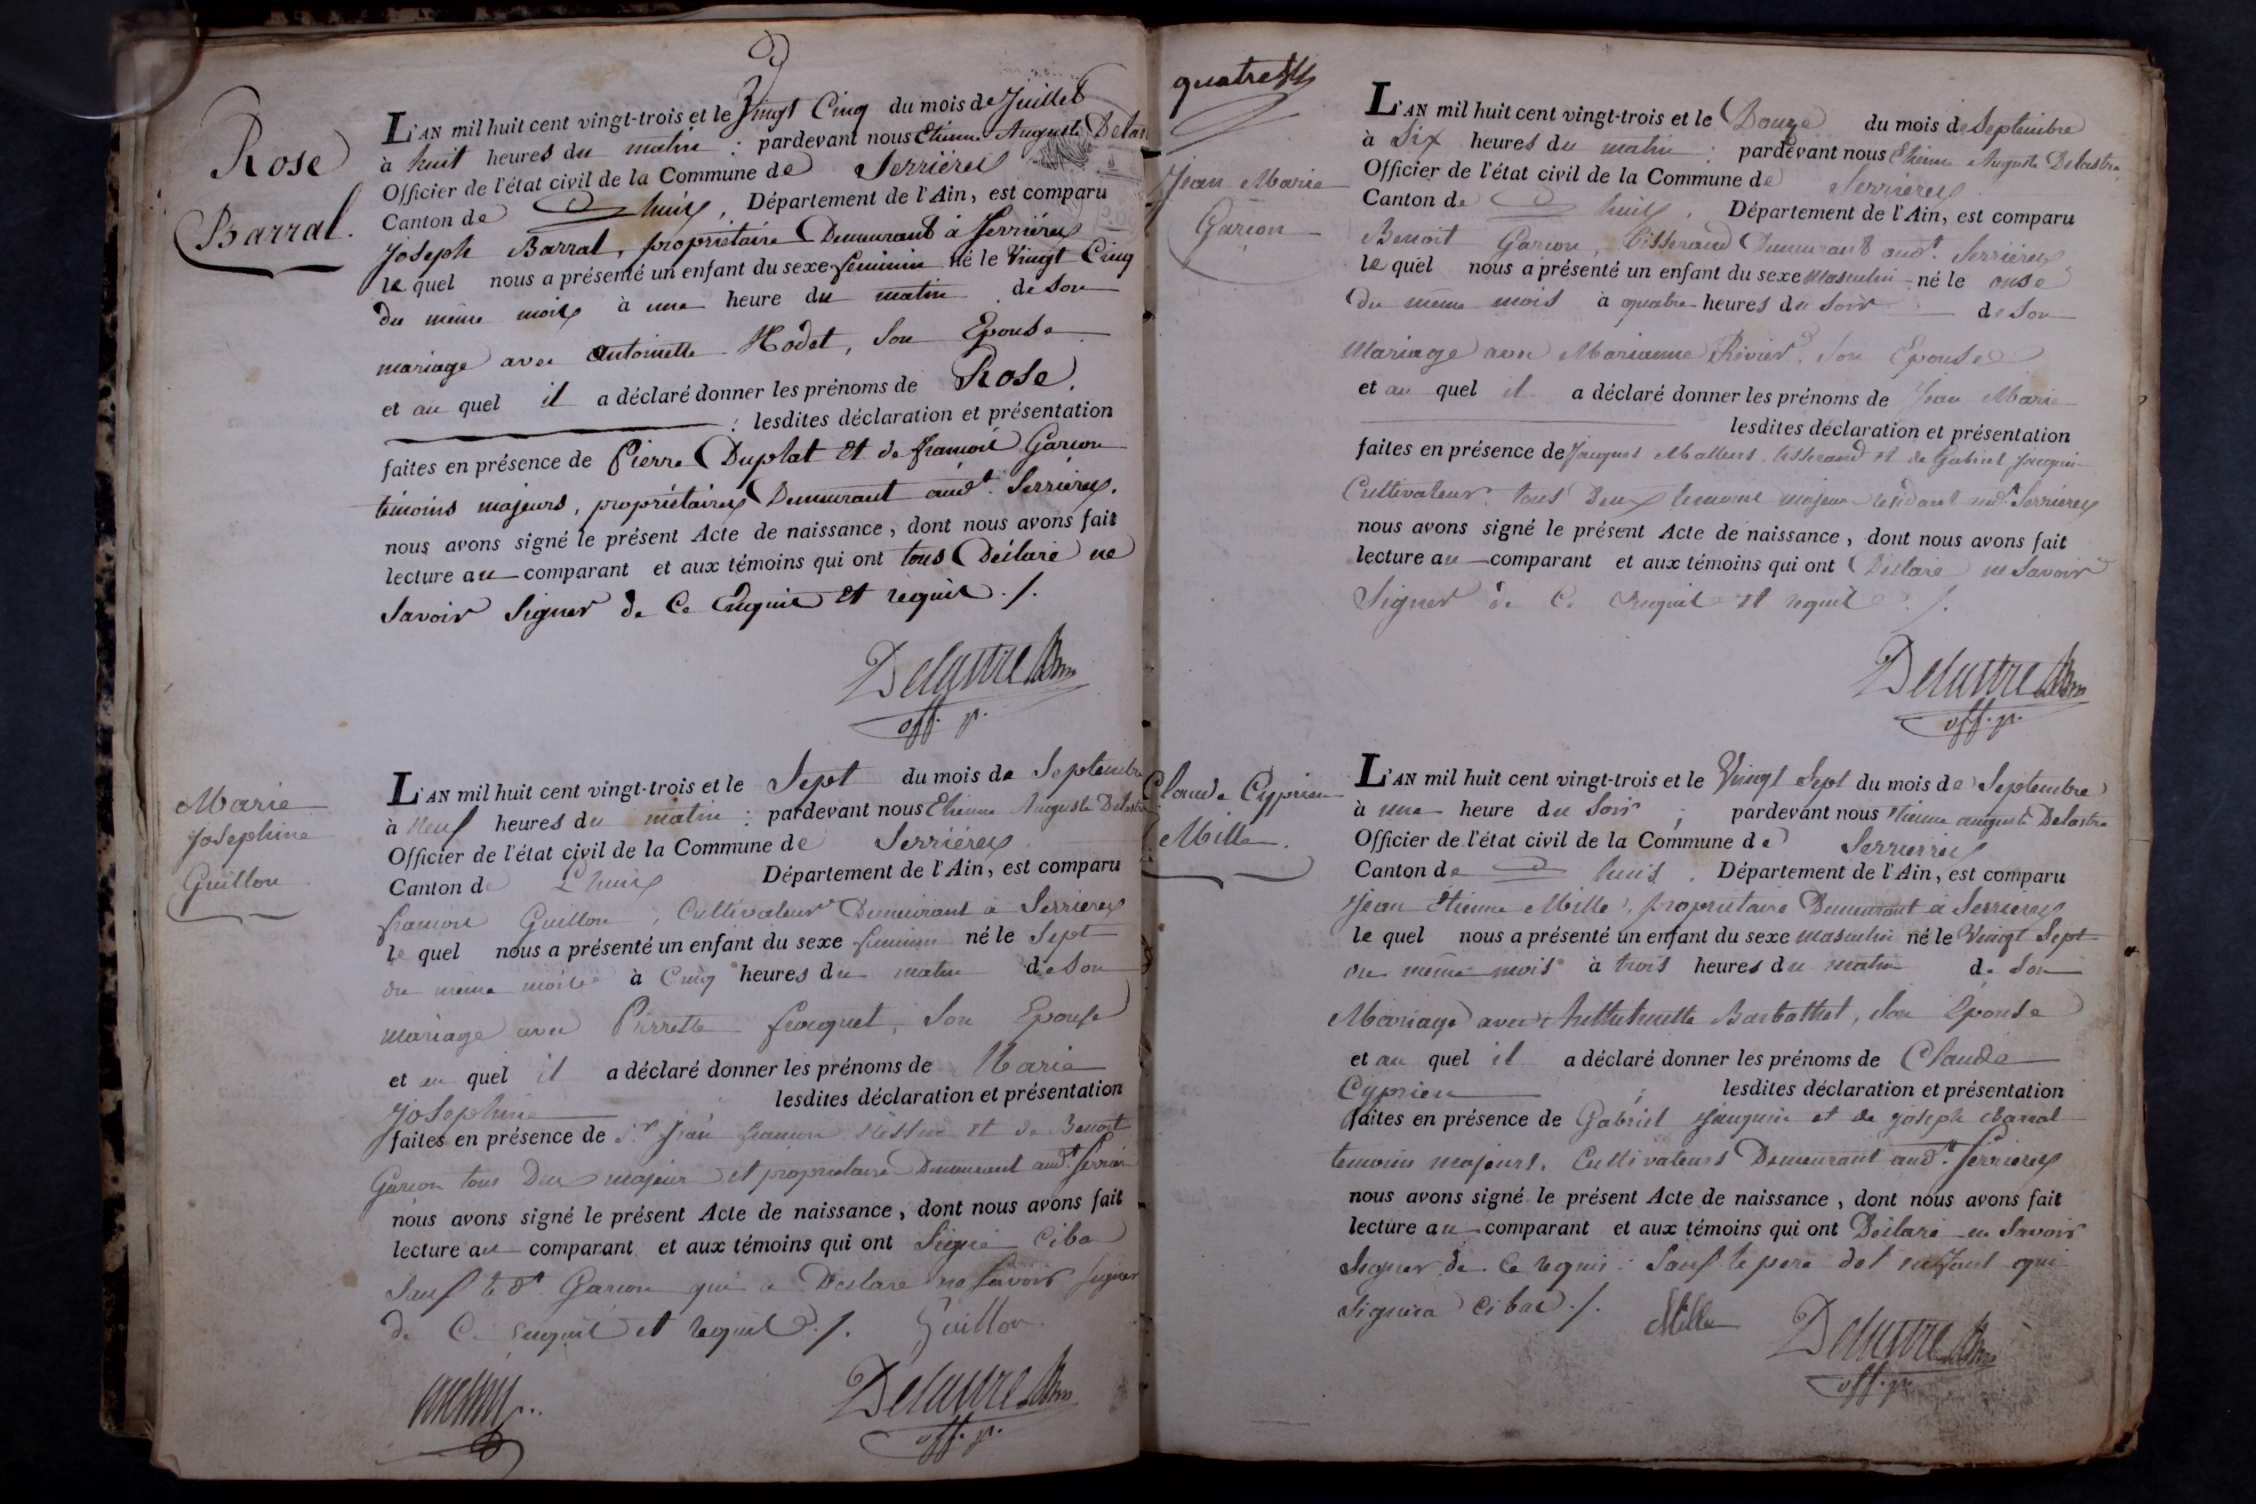 Rose
Barral.
L'AN mil huit cent vingt-trois et le Vingt Cinq du mois de Juillet
à huit heures du matin : pardevant nous Etienne Auguste
Officier de l'état civil de la Commune de Serrières
Canton de Lhuis, Département de l'Ain, est comparu
Joseph Barral, propriétaire Demeurant à Serrières
le quel nous a présenté un enfant du sexe féminin né le Vingt Cinq
du même mois à une heure du matin de son
mariage avec antoinette Hodet, son Epouse
et au quel il a déclaré donner les prénoms de Rose.
: lesdites déclaration et présentation
faites en présence de Pierre Duplat et de françois Garion
témoins majeurs, propriétaires Demeurant aud.t Serrières.
nous avons signé le présent Acte de naissance, dont nous avons fait
lecture au comparant et aux témoins qui ont tous Déclaré ne
Savoir Signer de Ce Enquis et requis ./.
Delastre
off. p.
Marie
Josephine
Guillon
L'AN mil huit cent vingt-trois et le Sept du mois de Septembre
à Neuf heures du matin : pardevant nous Etienne Auguste Delastre
Officier de l'état civil de la Commune de Serrières
Canton de Lhuis Département de l'Ain, est comparu
françois Guillon, Cultivateur Demeurant à Serrières
le quel nous a présenté un enfant du sexe féminin né le Sept
du même mois à Cinq heures du matin de Son
mariage avec Pierrette Son Epouse
et au quel il a déclaré donner les prénoms de Marie
Josephine lesdites déclaration et présentation
faites en présence de S.r Jean françois et de Benoit
Garion tous Deux majeur et propriétaire Demeurant aud.t
nous avons signé le présent Acte de naissance, dont nous avons fait
lecture au comparant et aux témoins qui ont Signé Ciba
Sauf le d.t Garion qui a Déclaré ne Savoir Signer
de Ce enquis et requis ./. Guillon
Delastre
off. p.
quatre
Jean Marie
Garion
L'AN mil huit cent vingt-trois et le Douze du mois de Septembre
à Six heures du matin : pardevant nous Etienne Auguste Delastre
Officier de l'état civil de la Commune de Serrières
Canton de Lhuis. Département de l'Ain, est comparu
Benoit Garion, tisserand Demeurant aud.t Serrières
le quel nous a présenté un enfant du sexe masculin né le onse
du même mois à quatre heures du soir de Son
Mariage avec Marianne Rivier Son Epouse
et au quel il a déclaré donner les prénoms de Jean Marie
lesdites déclaration et présentation
faites en présence de Jacques tisserand et de Gabriel
Cultivateur tous Deux témoins majeur résidant aud.t Serrières
nous avons signé le présent Acte de naissance, dont nous avons fait
lecture au comparant et aux témoins qui ont Déclaré ne Savoir
Signer de Ce Enquis et requis ./.
Delastre
off. p.
Claude Cyprien
Mille.
L'AN mil huit cent vingt-trois et le Vingt Sept du mois de Septembre
à une heure du Soir ; pardevant nous etienne auguste Delastre
Officier de l'état civil de la Commune de Serrières
Canton de Lhuis. Département de l'Ain, est comparu
Jean Étienne Mille, propriétaire Demeurant à Serrières
le quel nous a présenté un enfant du sexe masculin né le Vingt Sept
du même mois à trois heures du matin de Son
Mariage avec Barbattet, Son Epouse
et au quel il a déclaré donner les prénoms de Claude
Cyprien ; lesdites déclaration et présentation
faites en présence de Gabriel et de joseph Barral
temoins majeurs, Cultivateurs Demeurant aud.t Serrières
nous avons signé le présent Acte de naissance, dont nous avons fait
lecture au comparant et aux témoins qui ont Déclaré ne Savoir
Signer de Ce requis : Sauf le pere del enfant qui
Signera Cibas ./. Mille
Delastre
off. p.